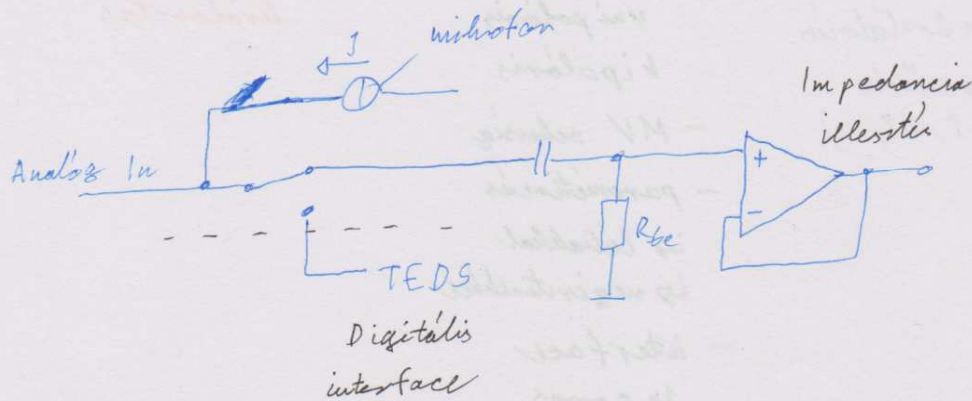 J
mikrofon
Impedancia
illesztés
Analóg In
Rbe
+
-
TEDS
Digitális
interface